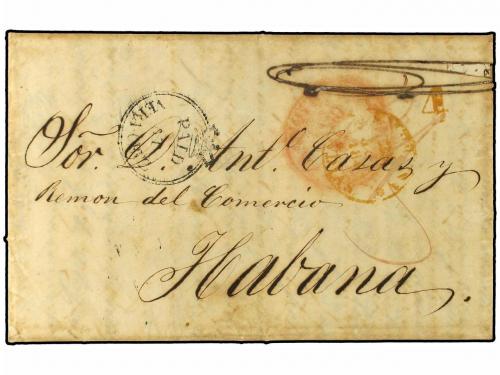 4
PAID
Sor. Dn. Anto. Casas y
Remon del Comercio
Habana.